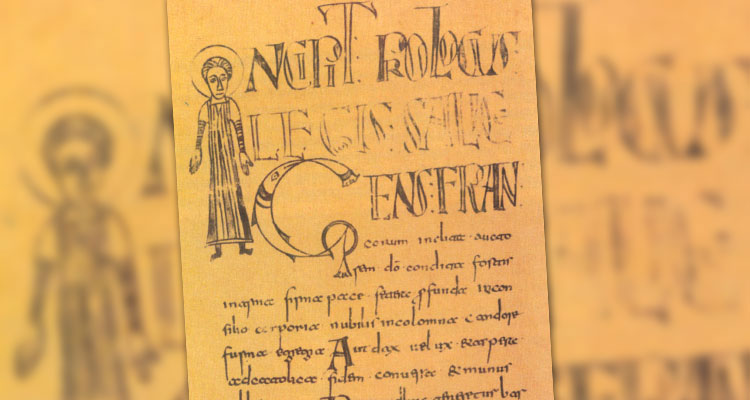 INCIPIT PROLOGUS
LEGIS SALICE
GENS FRAN
corum inclita aucto
rem dō condita fortis
in arma firma pace federe profunda in con
silio corporia nobilis incolomna candore
forma egregia Audax velox
fidem conuersa emunis